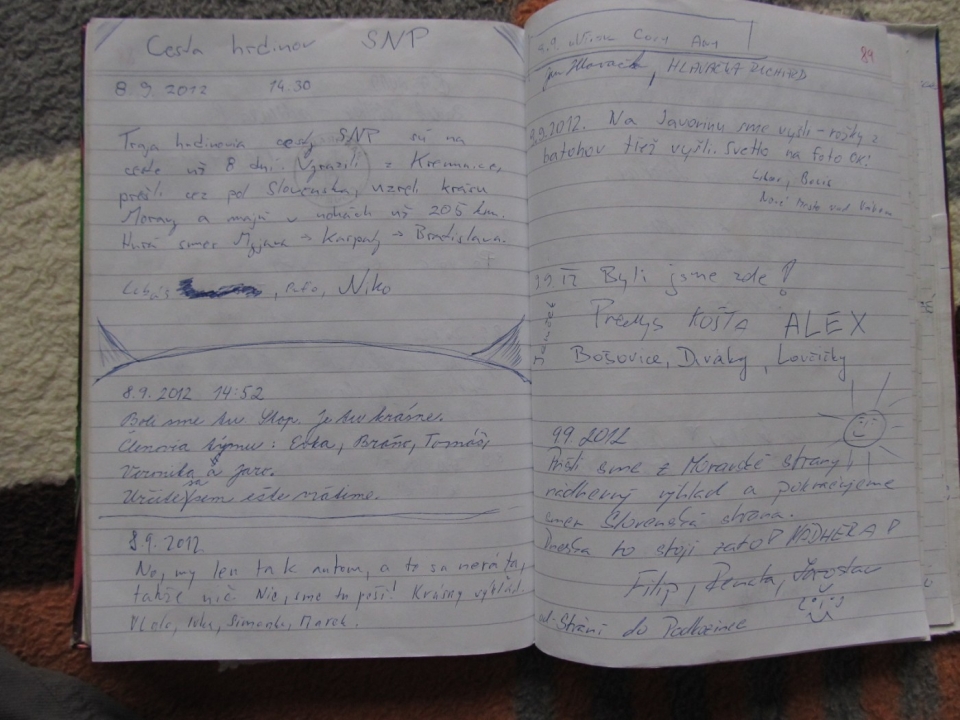 Cesta hrdinov SNP
8.9.2012 14.30
Traja hrdinovia cesty SNP sú na
ceste už 8 dní. Vyrazili z Kremnice,
prešli cez pol Slovenska, uzreli krásu
Moravy a majú v nohách už 205 km.
Hurá smer Myjava → Karpaty → Bratislava.
, Paťo, Niko
8.9.2012 14:52
Boli sme tu Stop. Je tu krásne.
Členovia týmu: Evka, Braňo, Tomáš,
Veronika a Jaro.
Určite sa sem ešte vrátime.
8.9.2012
No, my len tak autom, a to sa neráta,
takže nič. Nie, sme tu peši! Krásny výhľad!
Vlado, Ivka, Simonka, Marek.
89
HLAVAČKA RICHARD
9.9.2012. Na Javorinu sme vyšli - rožky z
batohov tiež vyšli. Svetlo na foto OK!
Libor, Boris
Nové Mesto nad Váhom
Byli jsme zde!
KOŠŤA ALEX
Bošovice, Diváky, Lovčičky
9.9.2012
Prišli sme z Moravské strany
nádherný výhlad a pokračujeme
smer Slovenská strana.
to stojí zato! NÁDHERA!
Filip, Renata, Jaroslav
od-Strání do Podkozince